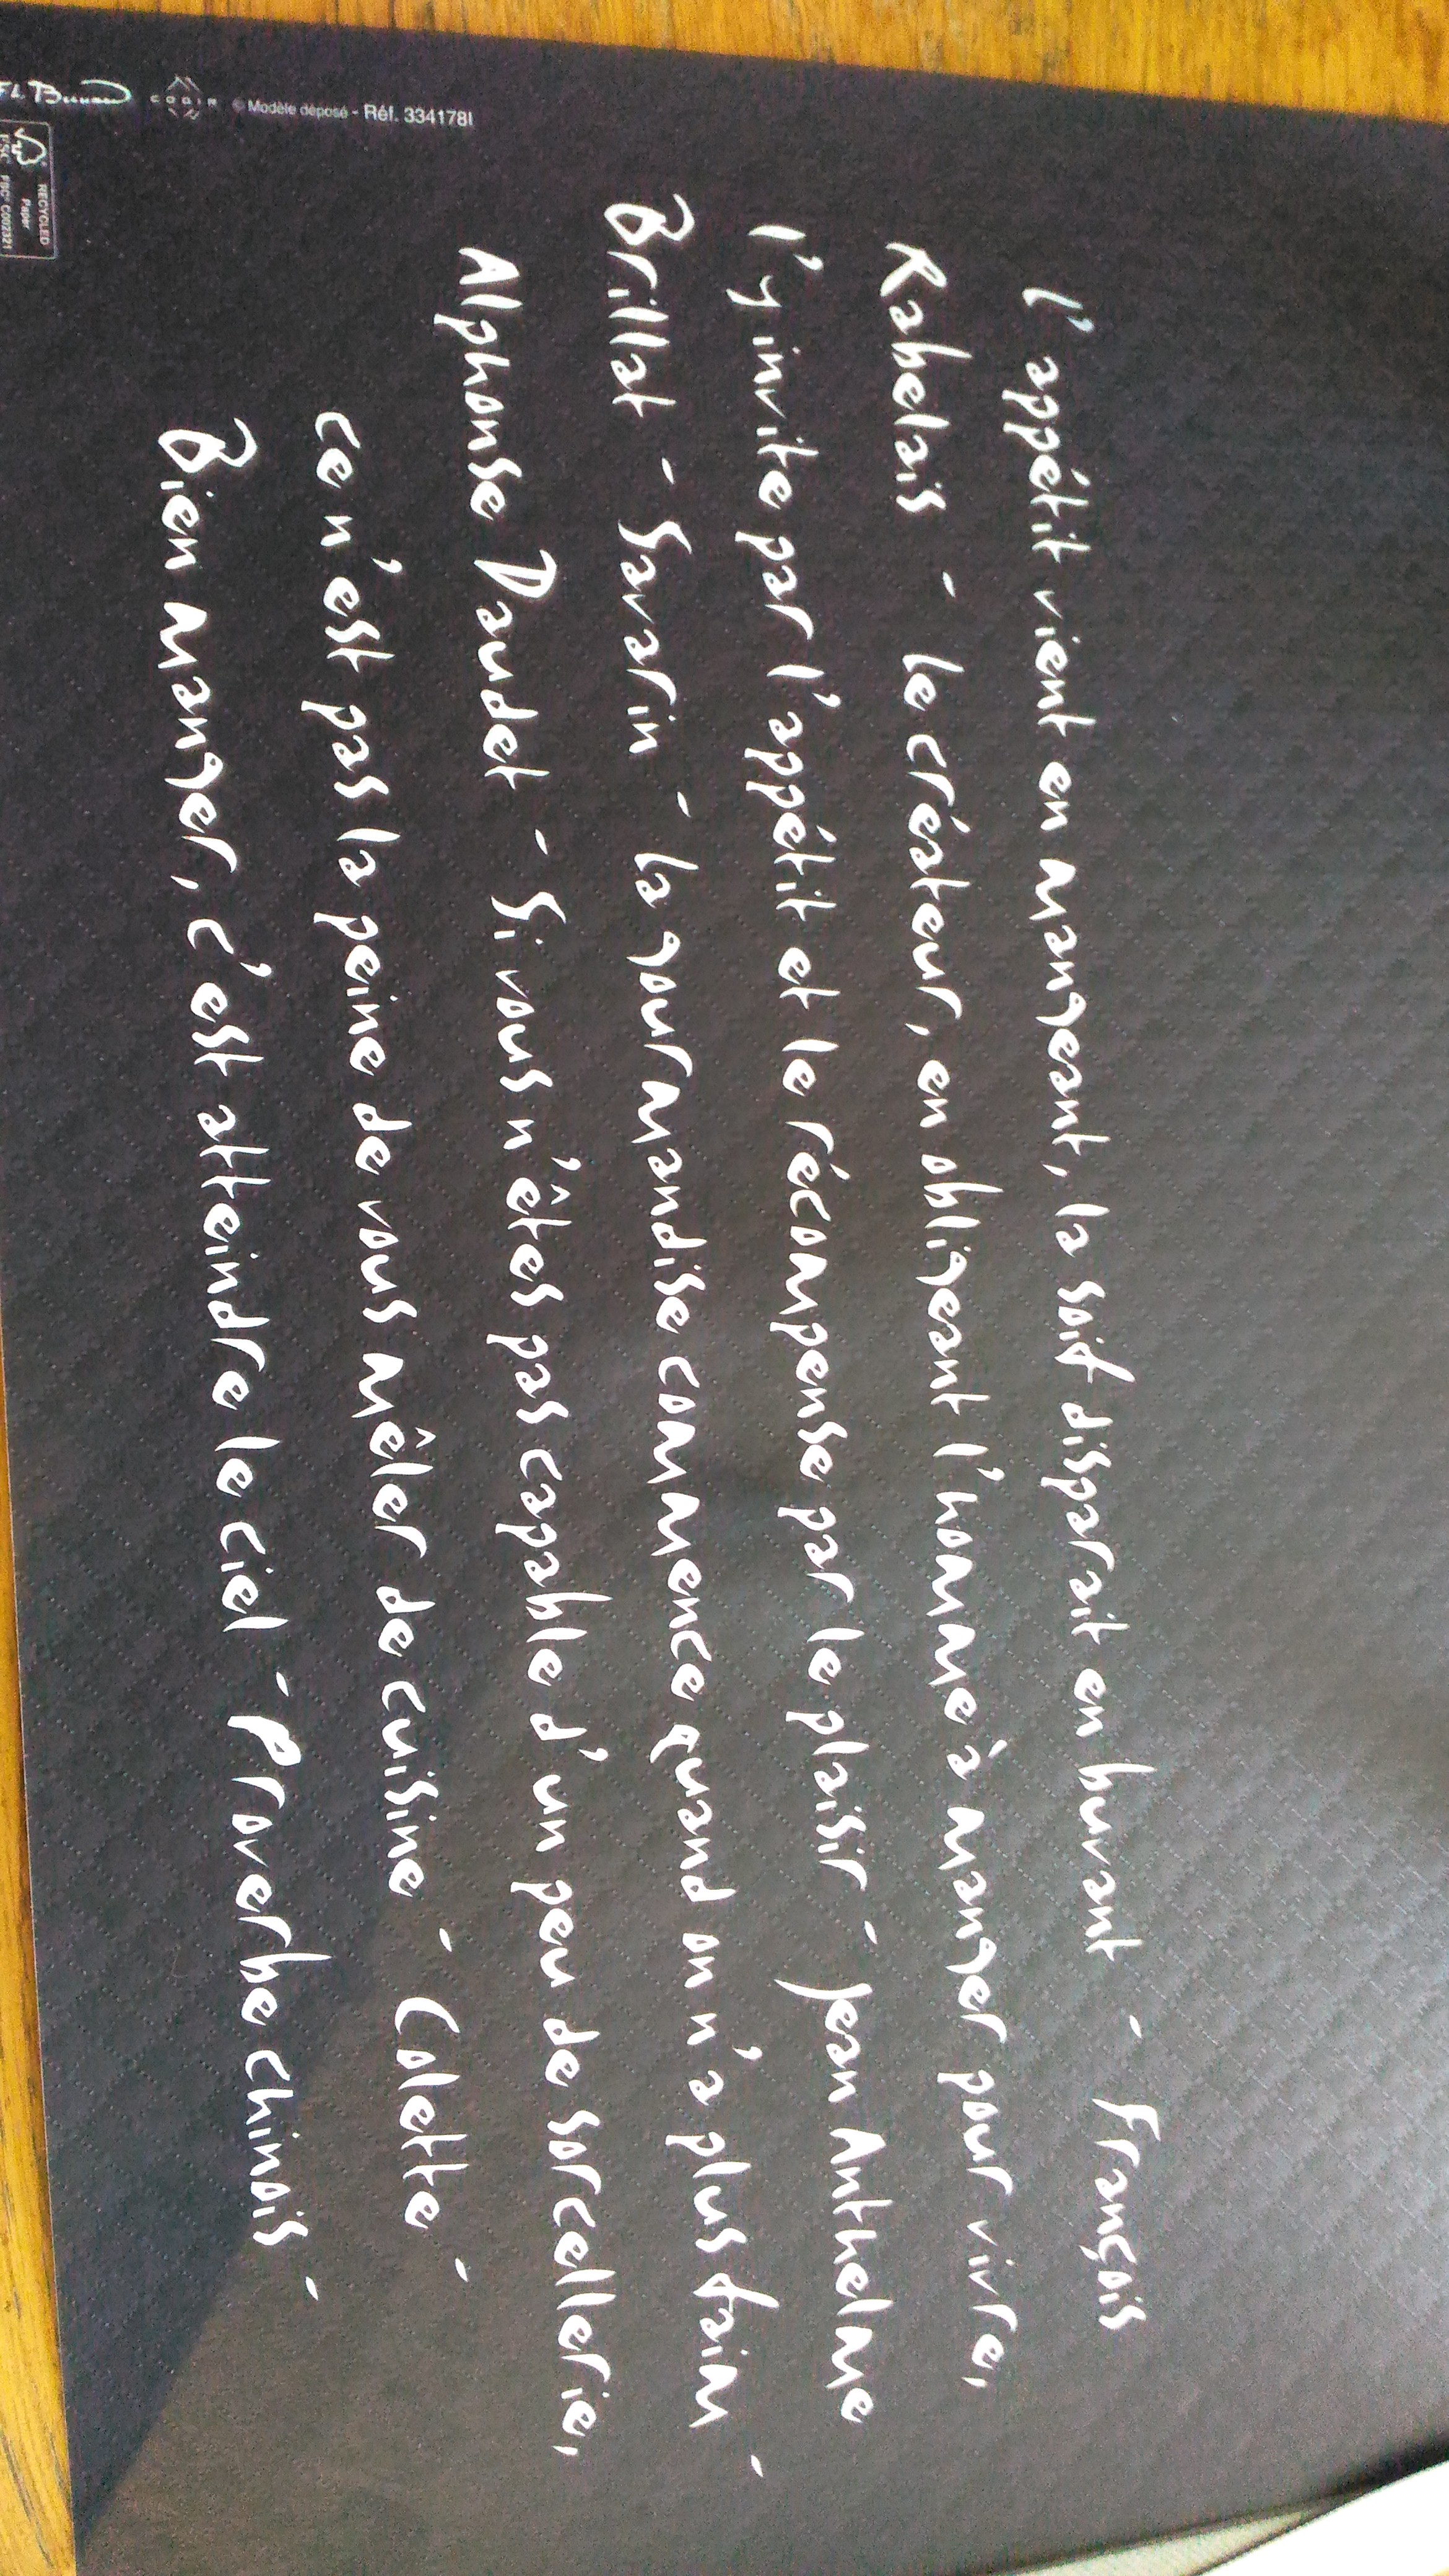 l'appétit vient en mangeant, la soif disparait en buvant - François
Rabelais - le créateur, en obligeant l'homme à manger pour vivre,
l'y invite par l'appétit et le récompense par le plaisir - Jean Anthelme
Brillat - Savarin - la gourmandise commence quand on n'a plus faim -
Alphonse Daudet - Si vous n'êtes pas capable d'un peu de sorcellerie,
ce n'est pas la peine de vous mêler de cuisine - Colette -
Bien manger, c'est atteindre le ciel - Proverbe chinois -
COGIR © Modèle déposé - Réf. 334178I
RECYCLED
Paper
FSC® C002321